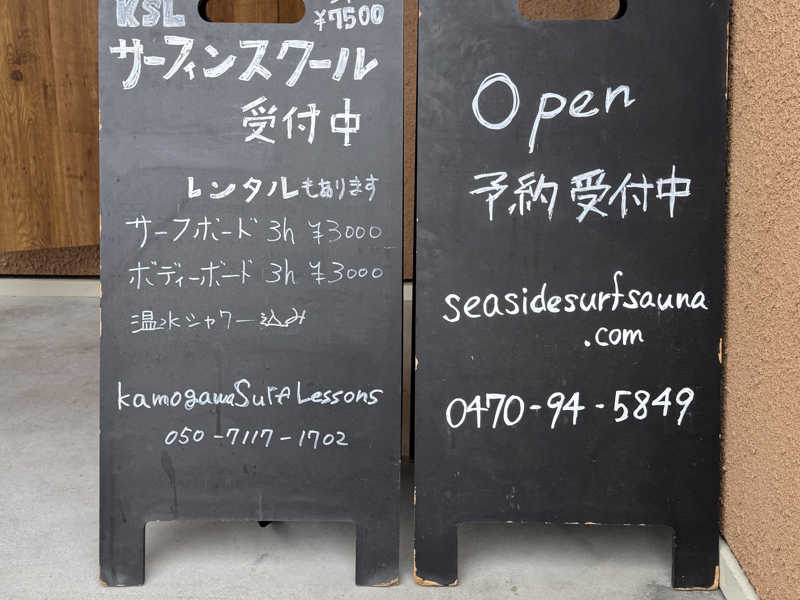 KSL
¥7500
サーフィンスクール
受付中
レンタルもあります
サーフボード 3h ¥3000
ボディーボード 3h ¥3000
温水シャワー込み
kamogawaSurfLessons
050-7117-1702
Open
予約受付中
seasidesurfsauna
.com
0470-94-5849